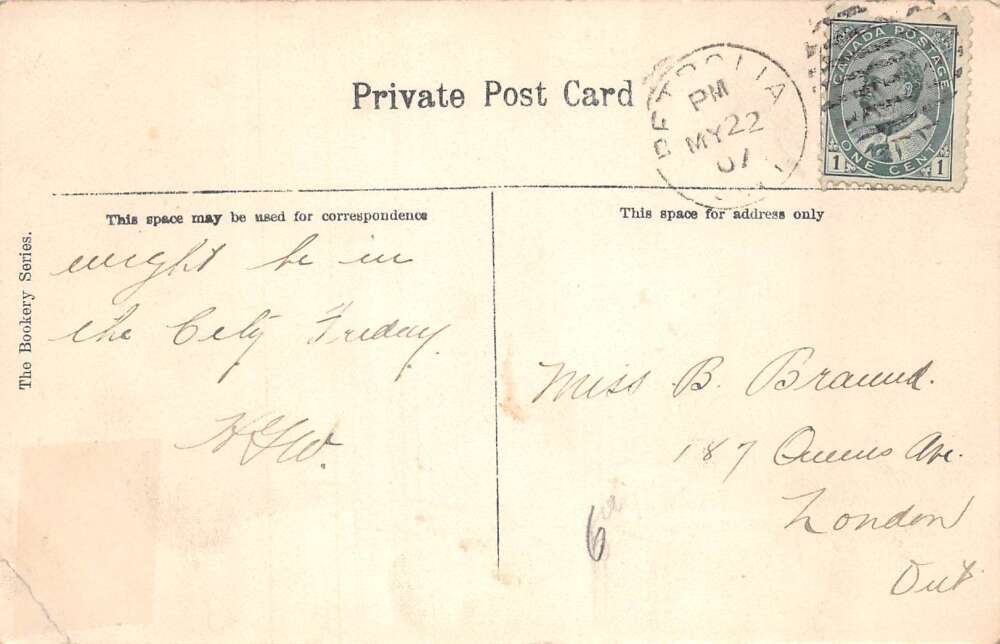 Private Post Card
PETROLIA
PM
MY 22
07
CANADA POSTAGE
ONE CENT
1 1
This space may be used for correspondence
This space for address only
The Bookery Series.
might be in
the City Friday.
Miss B. Braund.
187 Queens Ave.
London
Ont
6